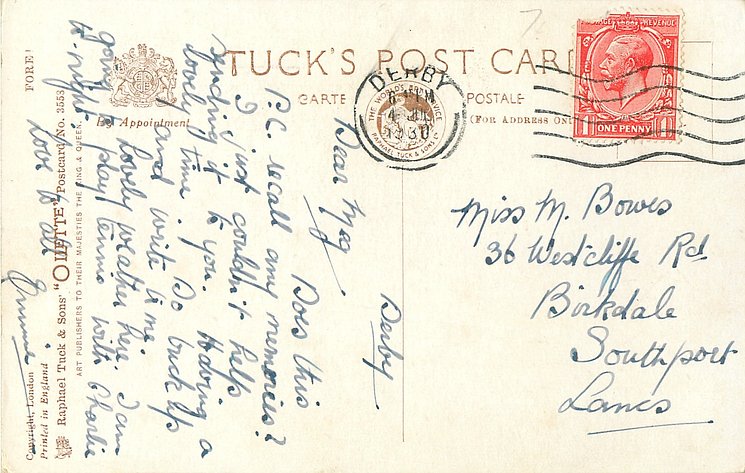 TUCK'S POST CARD
CARTE POSTALE
By Appointment
(FOR ADDRESS ONLY
DERBY
4 JL
1930
THE WORLD'S SERVICE
RAPHAEL TUCK & SONS
POSTAGE REVENUE
ONE PENNY
Miss M. Bowes
36 Westcliffe Rd
Birkdale
Southport
Lancs
Derby
Dear May,
Does this
P.C. recall any memories?
I just couldn't help
sending it to you. Having a
lovely time. Do buck up
and write to me.
Lovely weather here. I am
going to play tennis with Charlie
to-night.
Love to all
FORE
Raphael Tuck & Sons' "OILETTE" Postcard No. 3553
ART PUBLISHERS TO THEIR MAJESTIES THE KING & QUEEN.
Copyright, London
Printed in England